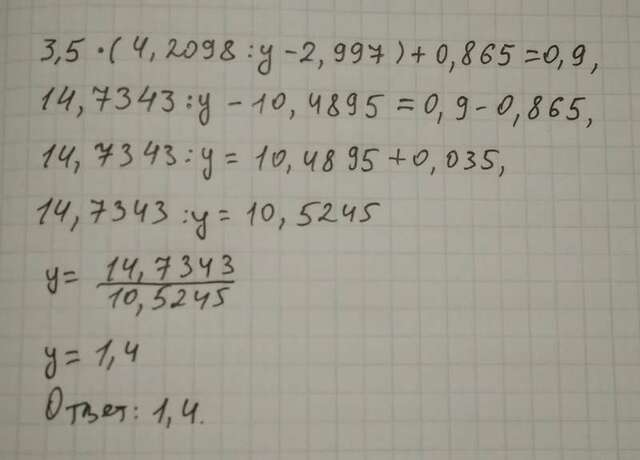 3,5 · (4,2098 : y - 2,997) + 0,865 = 0,9,
14,7343 : y - 10,4895 = 0,9 - 0,865,
14,7343 : y = 10,4895 + 0,035,
14,7343 : y = 10,5245
y = 14,7343 / 10,5245
y = 1,4
Ответ: 1,4.